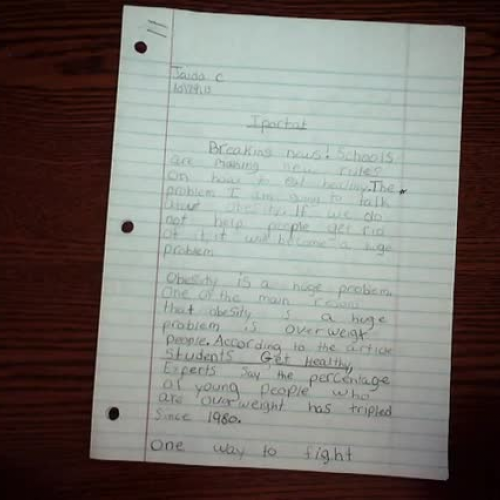 Jaida C
Ipactat
Breaking news! Schools
are making new rules
on how to eat healthy. The
problem I am going to talk
about obesity. If we do
not help people get rid
of it it will become a huge
problem
Obesity is a huge problem.
One of the main reason
that obesity is a huge
problem is overweight
people. According to the article
Students Get Healthy,
Experts say the percentage
of young people who
are overweight has tripled
since 1980.
One way to fight